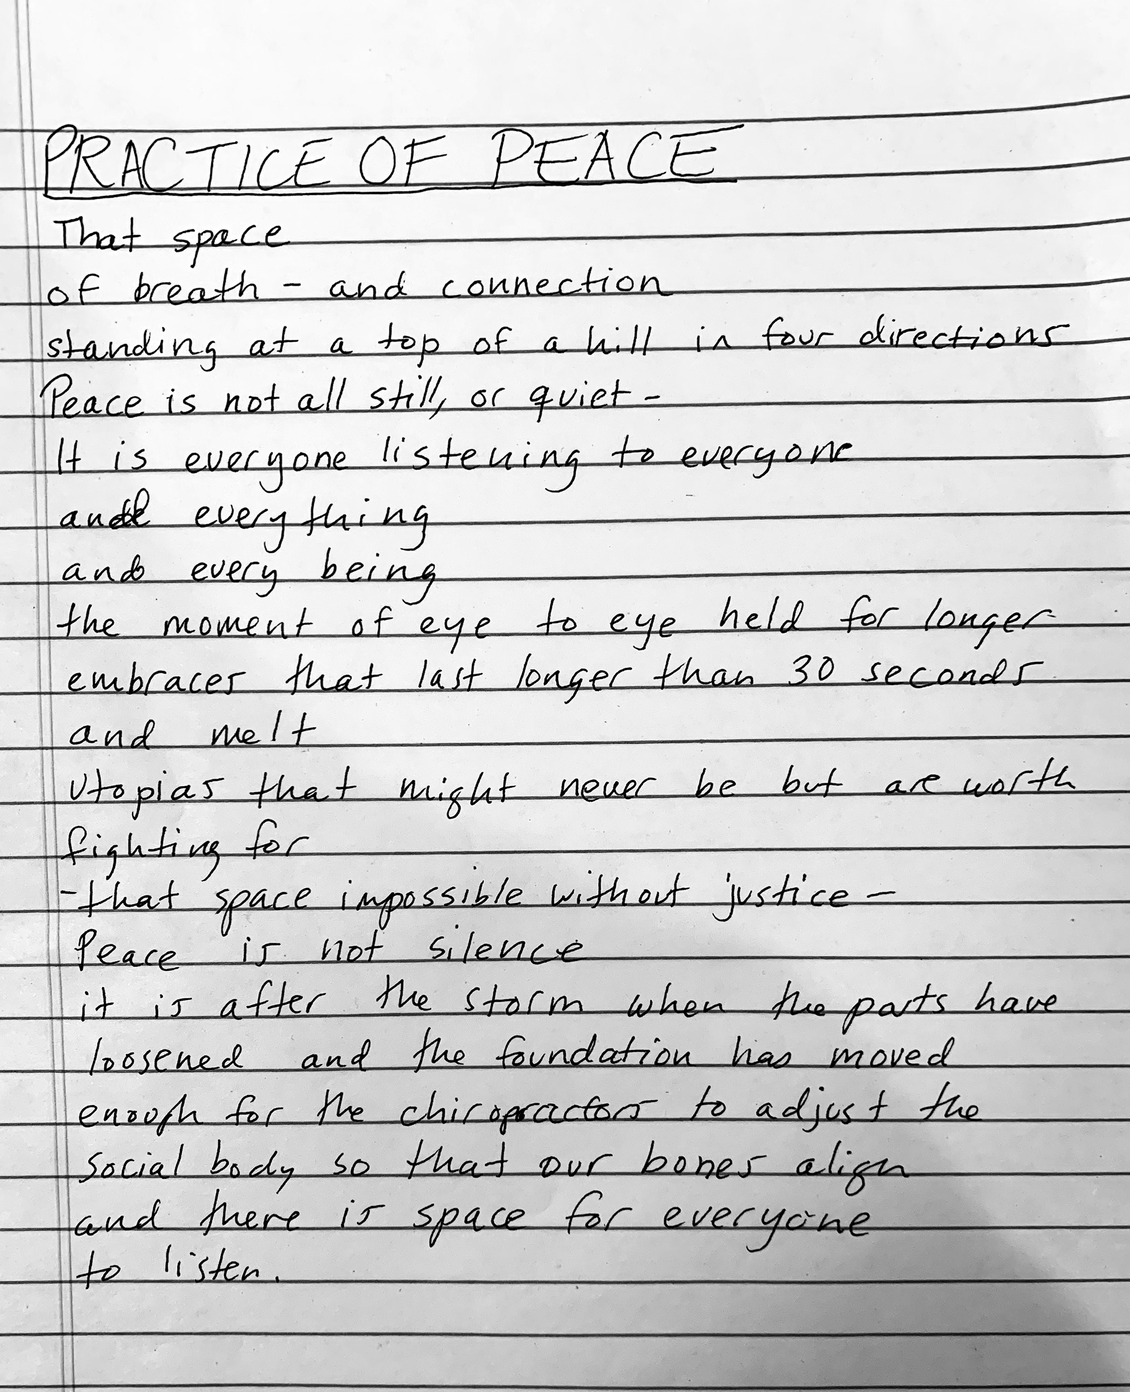 PRACTICE OF PEACE
That space
of breath - and connection
standing at a top of a hill in four directions
Peace is not all still, or quiet -
It is everyone listening to everyone
and everything
and every being
the moment of eye to eye held for longer
embraces that last longer than 30 seconds
and melt
utopias that might never be but are worth
fighting for
-that space impossible without justice -
Peace is not silence
it is after the storm when the parts have
loosened and the foundation has moved
enough for the chiropractors to adjust the
social body so that our bones align
and there is space for everyone
to listen.